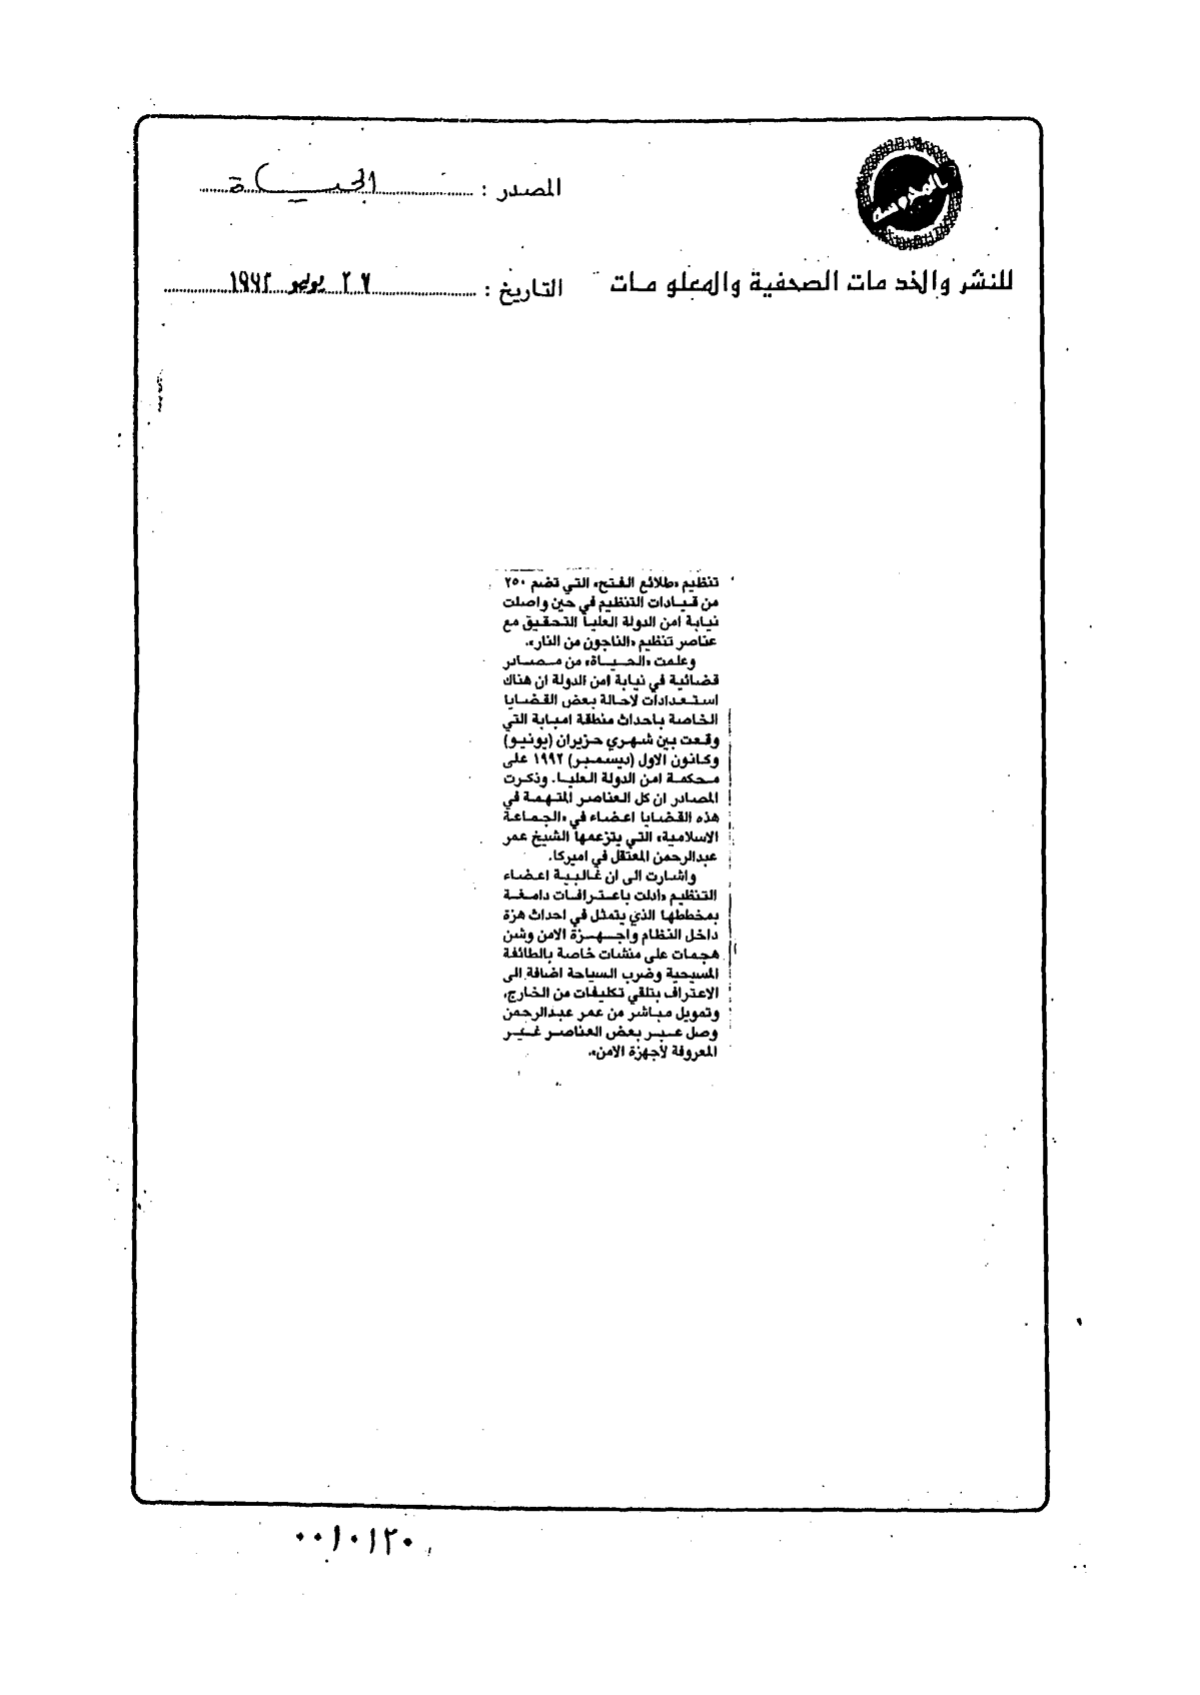 المحروسة
المصدر : الحياة
للنشر والخدمات الصحفية والمعلومات
التاريخ : ٢٦ يوليو ١٩٩٣
تنظيم «طلائع الفتح» التي تضم ٢٥٠
من قيادات التنظيم في حين واصلت
نيابة امن الدولة العليا التحقيق مع
عناصر تنظيم «الناجون من النار».
وعلمت «الحياة» من مصادر
قضائية في نيابة امن الدولة ان هناك
استعدادات لاحالة بعض القضايا
الخاصة باحداث منطقة امبابة التي
وقعت بين شهري حزيران (يونيو)
وكانون الاول (ديسمبر) ١٩٩٢ على
محكمة امن الدولة العليا. وذكرت
المصادر ان كل العناصر المتهمة في
هذه القضايا اعضاء في «الجماعة
الاسلامية» التي يتزعمها الشيخ عمر
عبدالرحمن المعتقل في اميركا.
واشارت الى ان غالبية اعضاء
التنظيم «ادلت باعترافات دامغة
بمخططها الذي يتمثل في احداث هزة
داخل النظام واجهزة الامن وشن
هجمات على منشات خاصة بالطائفة
المسيحية وضرب السياحة اضافة الى
الاعتراف بتلقي تكليفات من الخارج،
وتمويل مباشر من عمر عبدالرحمن
وصل عبر بعض العناصر غير
المعروفة لأجهزة الامن».
٠٠١٠١٢٠